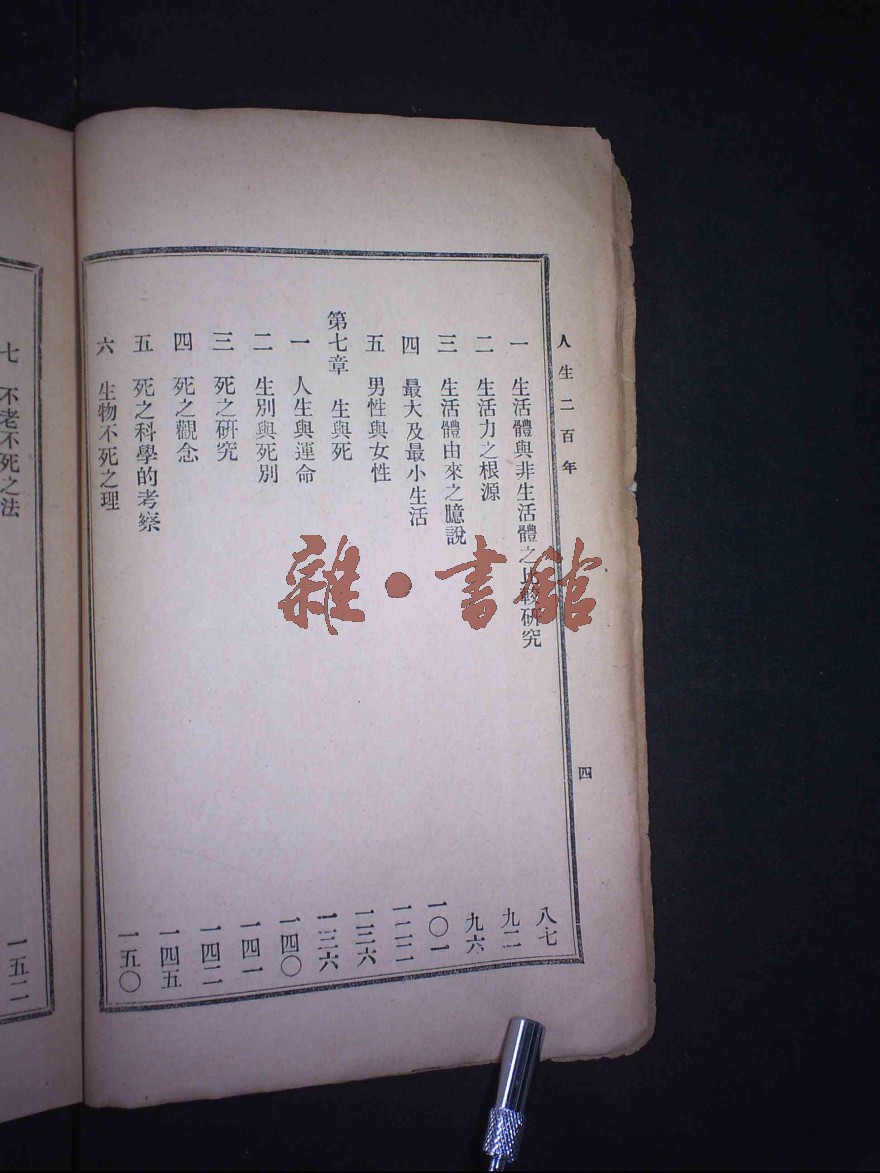 人生二百年
四
一 生活體與非生活體之比較研究 八七
二 生活力之根源 九二
三 生活體由來之臆說 九六
四 最大及最小生活 一〇一
五 男性與女性 一二二
第七章 生與死 一三六
一 人生與運命 一三六
二 生別與死別 一四〇
三 死之研究 一四一
四 死之觀念 一四二
五 死之科學的考察 一四五
六 生物不死之理 一五〇
七 不老不死之法 一五二
雜·書館